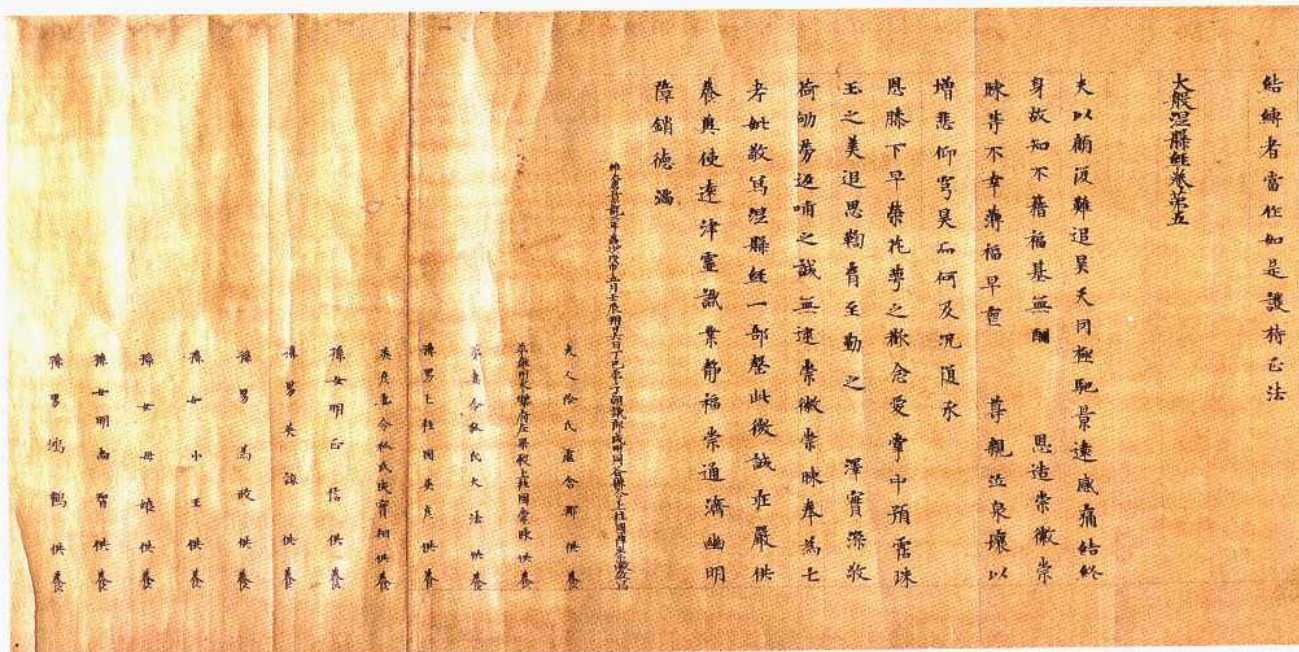 結縛者當作如是護持正法
大般涅槃經卷第五
夫以顧復難追昊天罔極馳景遠感痛結終
身故知不藉福基無酬 恩造崇徽崇
暕等不幸薄福早虧 尊親泣泉壤以
增悲仰穹昊而何及況復承
恩膝下早榮花萼之歡念愛掌中預霑珠
玉之美追思鞠育至勤之 澤實深敬
荷劬勞返哺之誠無逮崇徽崇暕奉為亡
考妣敬寫涅槃經一部罄此微誠莊嚴供
養冀使遠津靈識業靜福崇通濟幽明
障銷德滿
維大唐景龍二年歲次戊申五月壬辰朔廿六日丁巳弟子朝議郎成州同谷縣令上柱國薛崇徽敬寫
夫人陰氏盧舍那供養
弟雍州永樂府左果毅上柱國崇暕供養
弟妻令狐氏大法供養
孫男上柱國英彥供養
英彥妻令狐氏成實相供養
孫女明正信供養
孫男英諒供養
孫男為政供養
孫女小王供養
孫女母娘供養
孫女明尚智供養
孫男鴻鶴供養